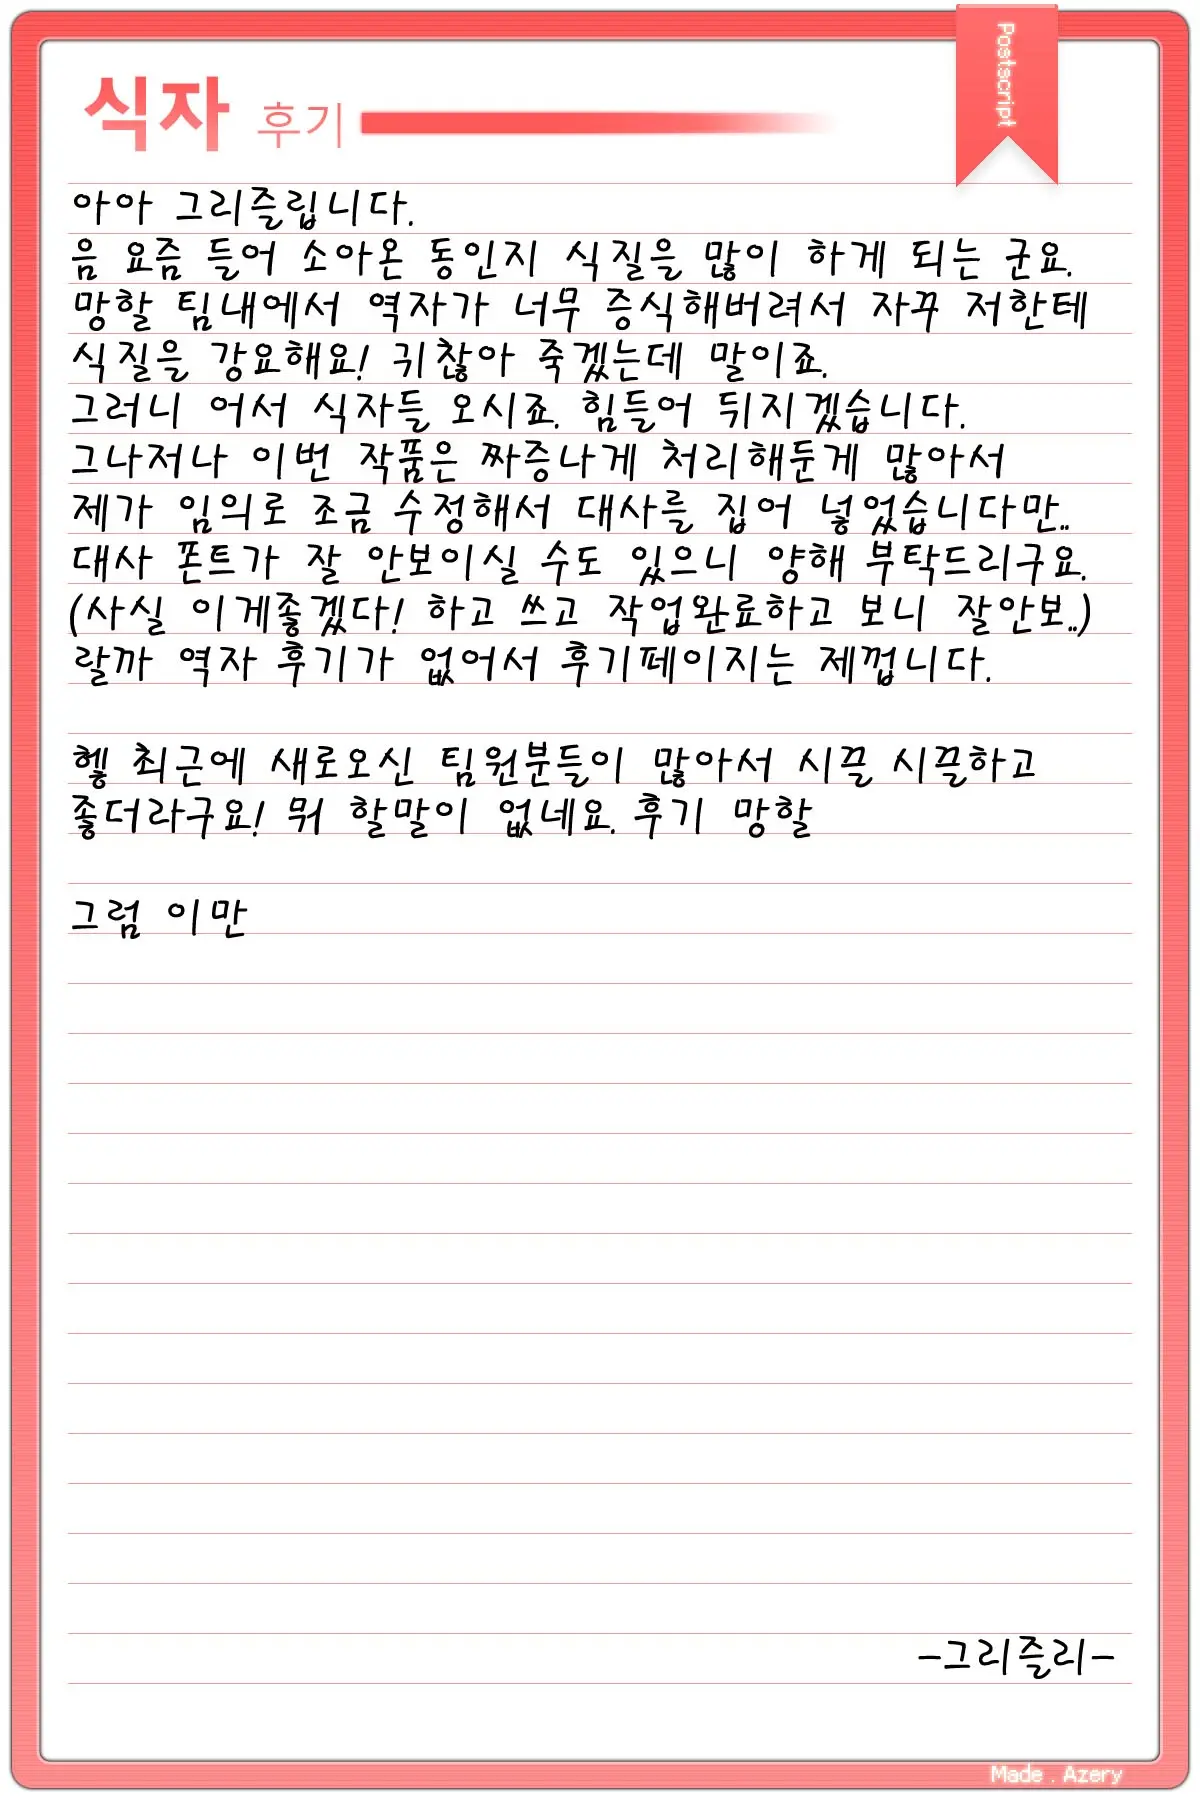 Postscript
식자 후기
아아 그리즐립니다.
음 요즘 들어 소아온 동인지 식질을 많이 하게 되는 군요.
망할 팀내에서 역자가 너무 증식해버려서 자꾸 저한테
식질을 강요해요! 귀찮아 죽겠는데 말이죠.
그러니 어서 식자들 오시죠. 힘들어 뒤지겠습니다.
그나저나 이번 작품은 짜증나게 처리해둔게 많아서
제가 임의로 조금 수정해서 대사를 집어 넣었습니다만..
대사 폰트가 잘 안보이실 수도 있으니 양해 부탁드리구요.
(사실 이게좋겠다! 하고 쓰고 작업완료하고 보니 잘안보..)
랄까 역자 후기가 없어서 후기페이지는 제껍니다.
헿 최근에 새로오신 팀원분들이 많아서 시끌 시끌하고
좋더라구요! 뭐 할말이 없네요. 후기 망할
그럼 이만
-그리즐리-
Made . Azery